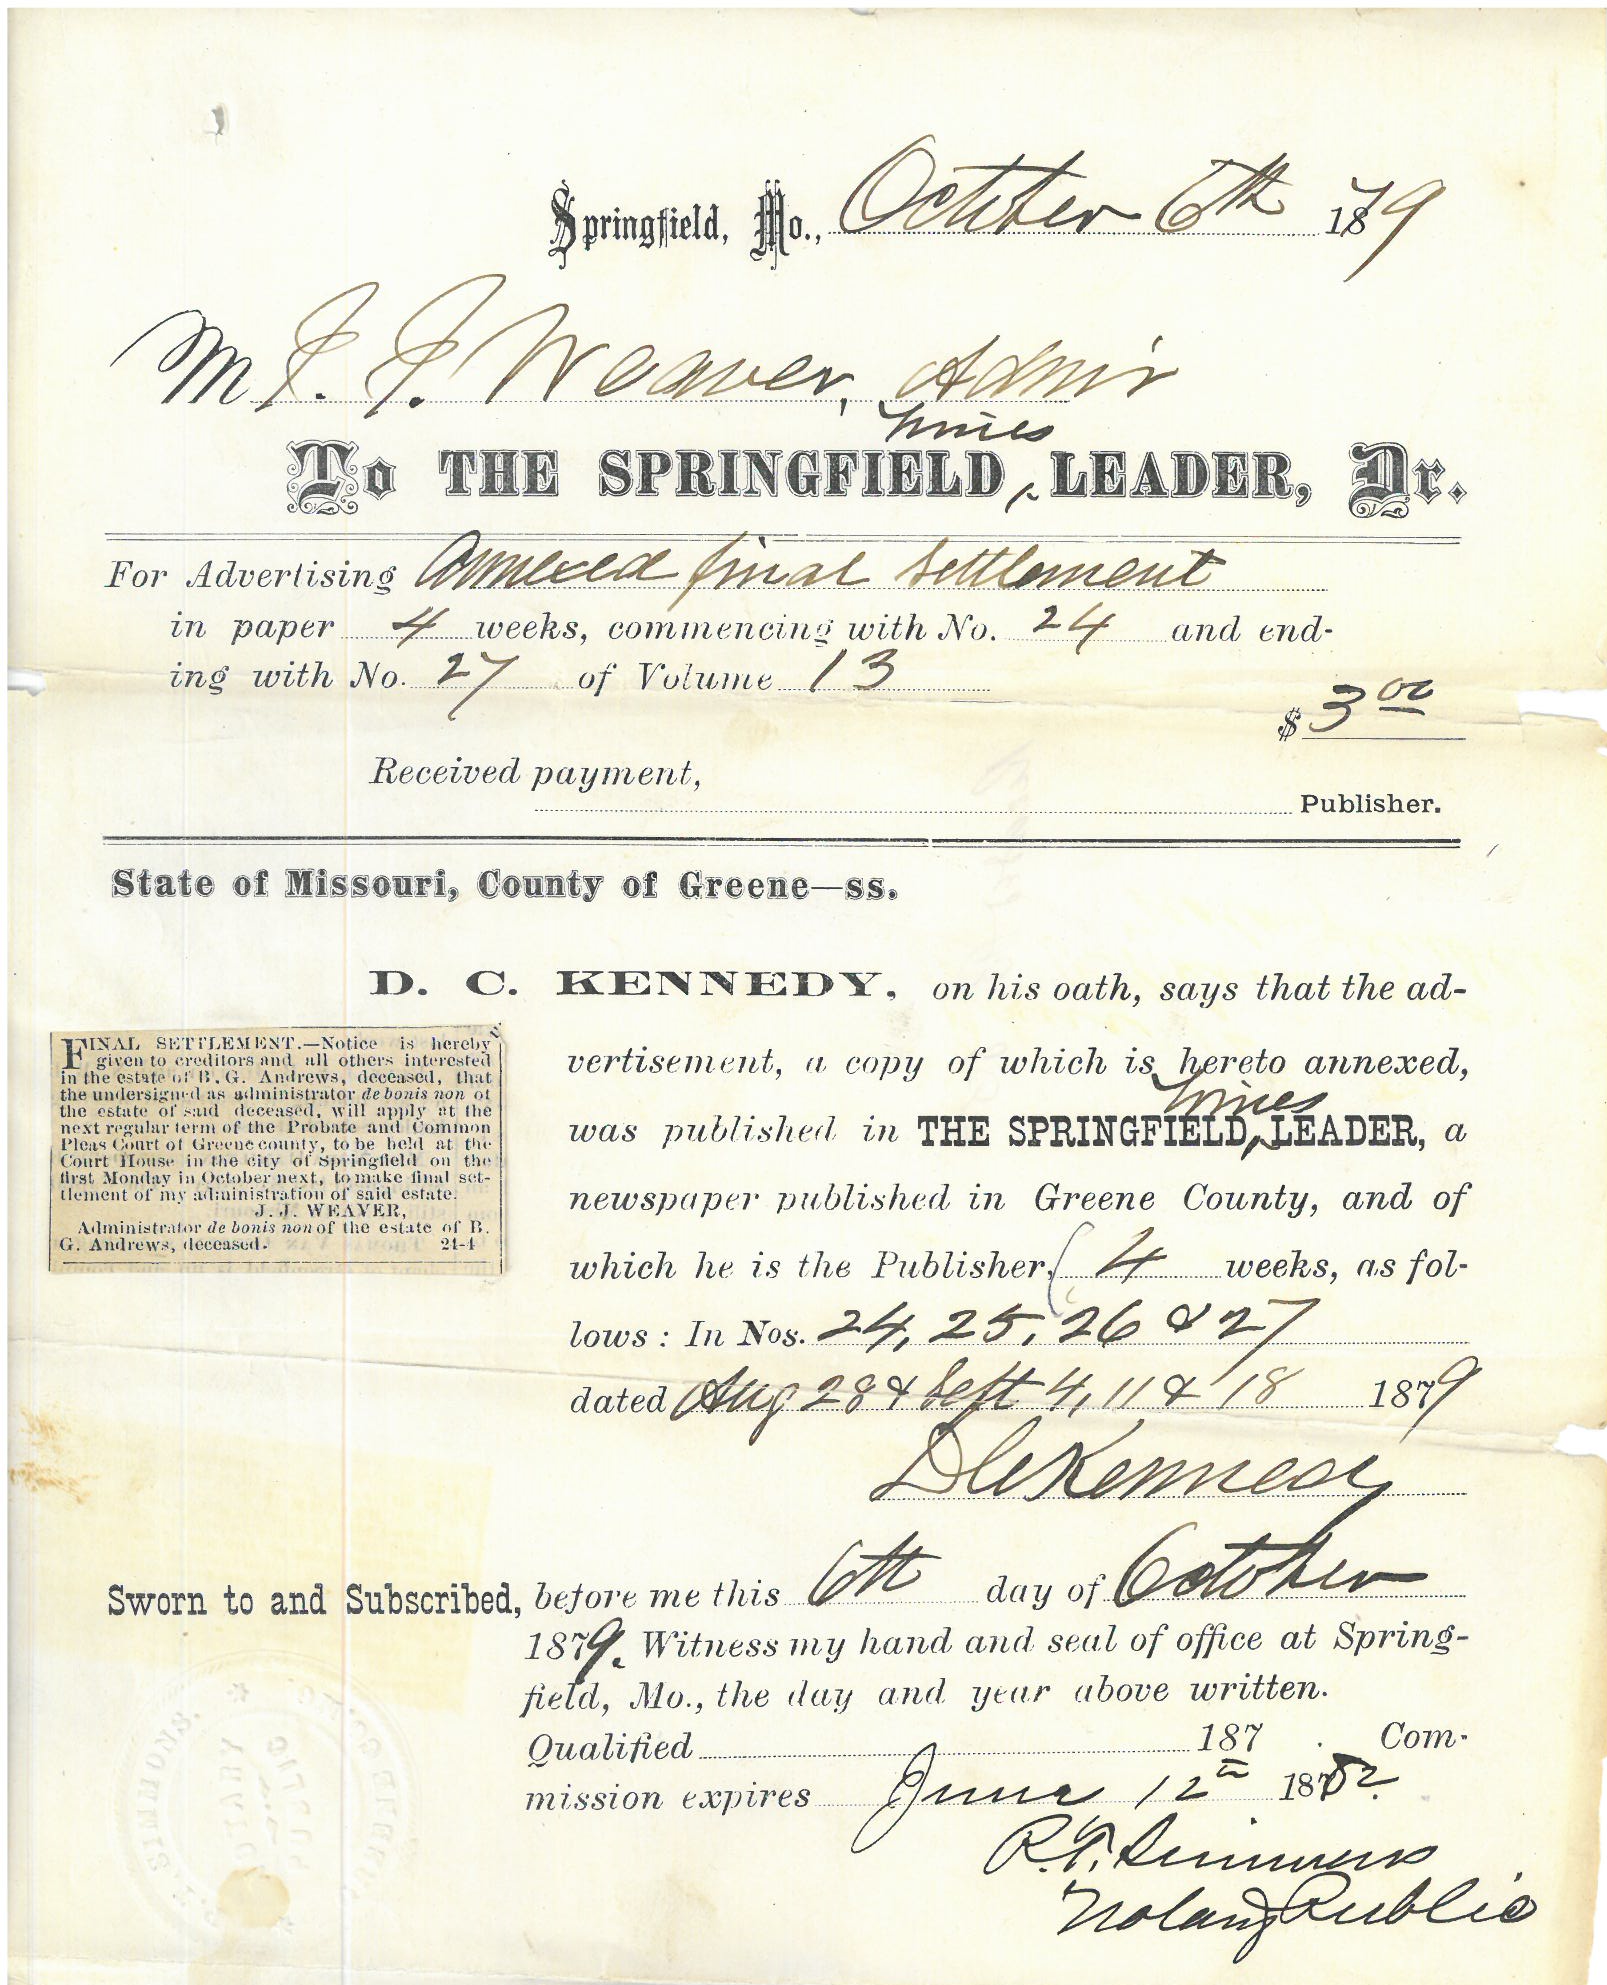 Springfield, Mo., October 6th 1879
M J. J. Weaver, Admr
Times
To THE SPRINGFIELD ‸ LEADER, Dr.
For Advertising Annexed final Settlement
in paper 4 weeks, commencing with No. 24 and end-
ing with No. 27 of Volume 13
$ 3 00
Received payment,
Publisher.
State of Missouri, County of Greene—ss.
D. C. KENNEDY, on his oath, says that the ad-
vertisement, a copy of which is hereto annexed,
Times
was published in THE SPRINGFIELD ‸ LEADER, a
newspaper published in Greene County, and of
which he is the Publisher, ( 4 weeks, as fol-
lows: In Nos. 24, 25, 26 & 27
dated Aug 28 & Sept 4, 11 & 18 1879
D C Kennedy
FINAL SETTLEMENT.—Notice is hereby
given to creditors and all others interested
in the estate of B. G. Andrews, deceased, that
the undersigned as administrator de bonis non of
the estate of said deceased, will apply at the
next regular term of the Probate and Common
Pleas Court of Greene county, to be held at the
Court House in the city of Springfield on the
first Monday in October next, to make final set-
tlement of my administration of said estate.
J. J. WEAVER,
Administrator de bonis non of the estate of B.
G. Andrews, deceased. 24-4
Sworn to and Subscribed, before me this 6th day of October
1879. Witness my hand and seal of office at Spring-
field, Mo., the day and year above written.
Qualified 187 . Com-
mission expires June 12th 1882.
R. T. Simmons
Notary Public
SIMMONS.